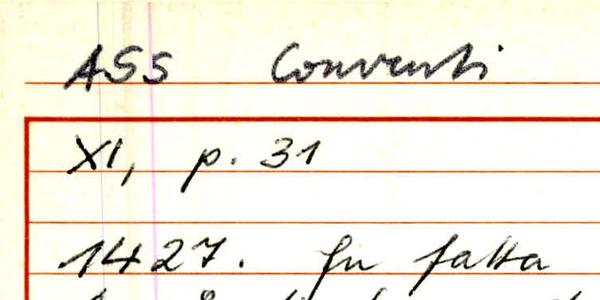 ASS Conventi
XI, p. 31
1427. Fu fatta